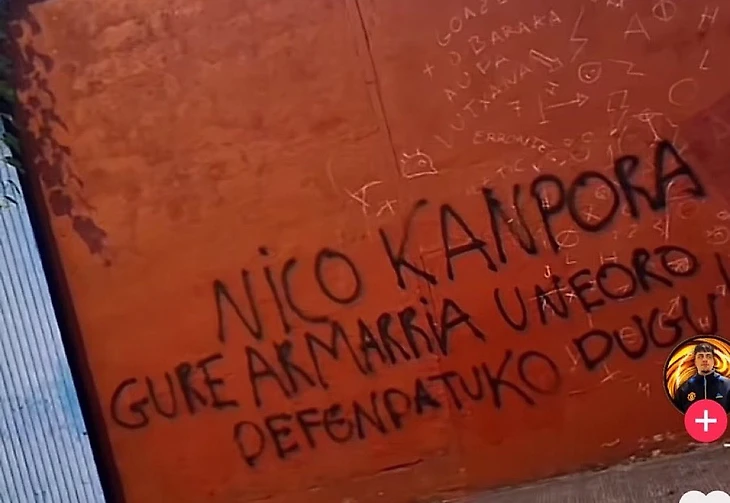 GOAZE
BARAKA
AUPA
ERRONTE
NICO KANPORA
GURE ARMARRIA UNEORO
DEFENDATUKO DUGU!